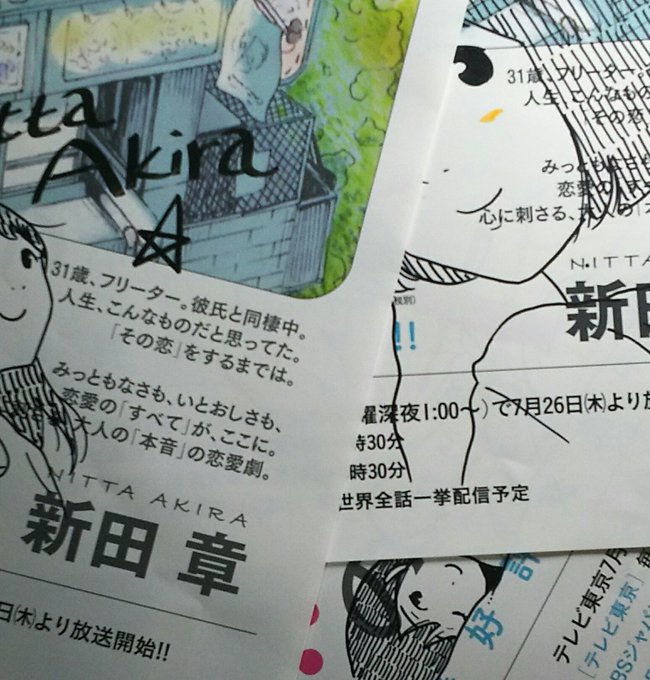 tta
Akira
31歳、フリーター。彼氏と同棲中。
人生、こんなものだと思ってた。
「その恋」をするまでは。
みっともなさも、いとおしさも、
恋愛の「すべて」が、ここに。
大人の「本音」の恋愛劇。
NITTA AKIRA
新田 章
日(木)より放送開始!!
31歳、フリーター。
人生、こんなもの
「その恋
みっともなさも
恋愛の
心に刺さる、大人の「本
NITTA
新田
税別)
!!
曜深夜1:00〜)で7月26日(木)より放
時30分
時30分
世界全話一挙配信予定
好評
テレビ東京7月
[テレビ東京]毎
BSジャパ